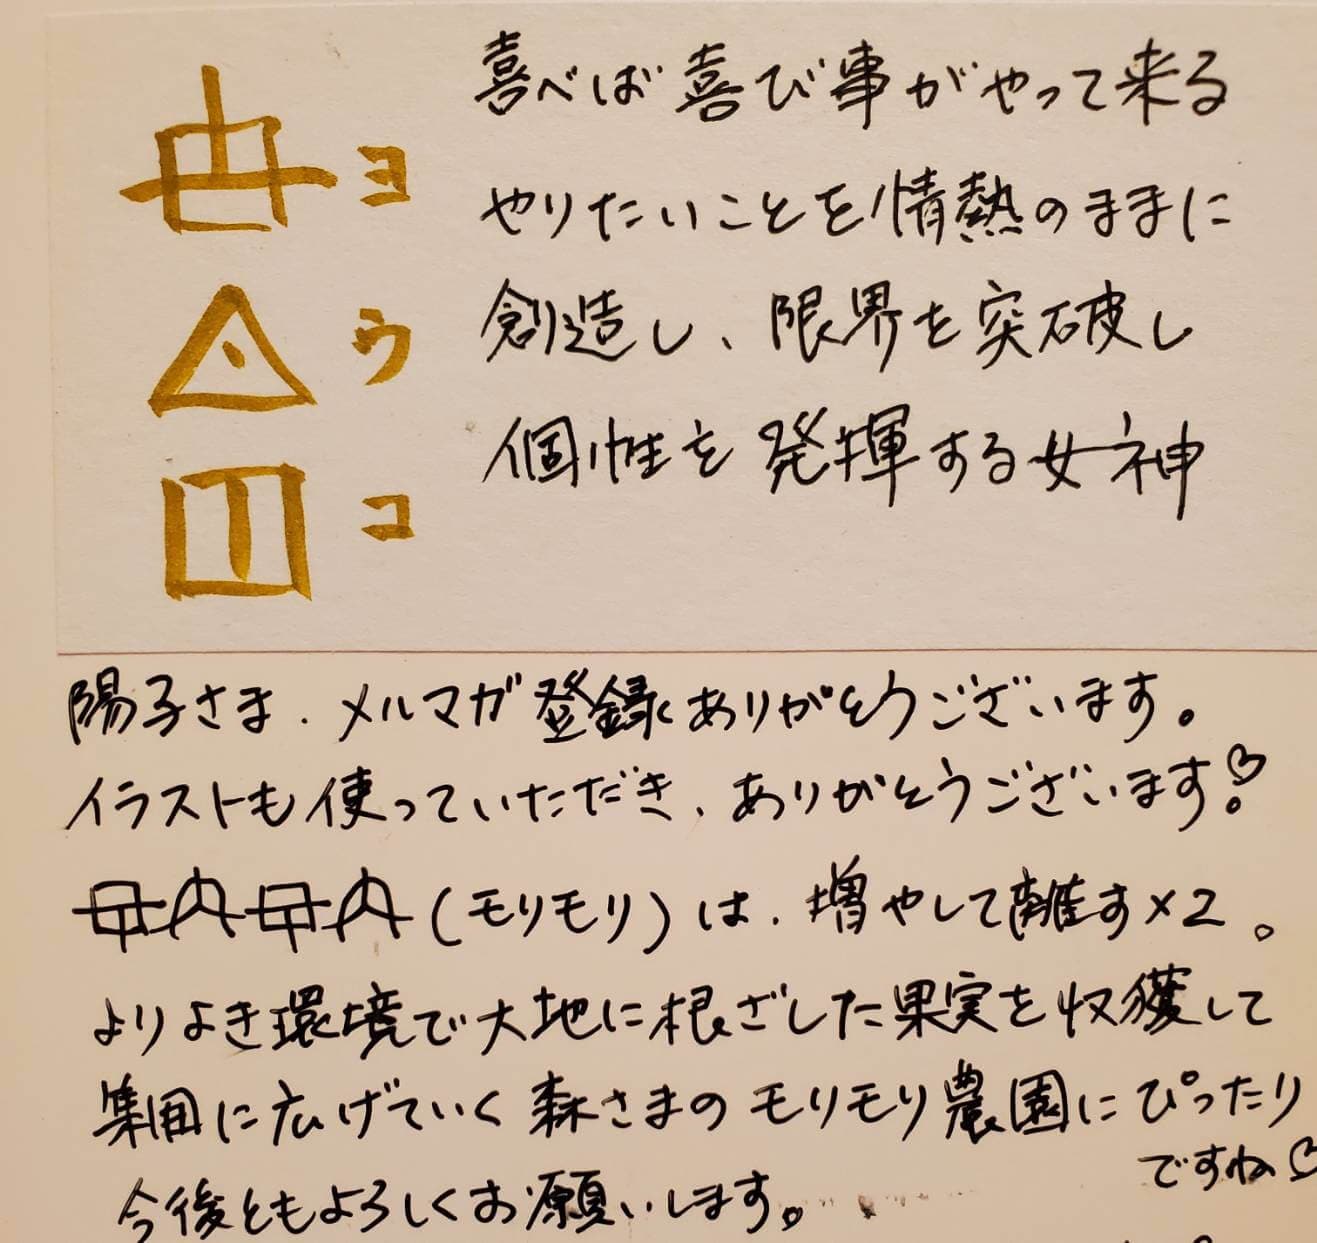 ヨ
ウ
コ
喜べば喜び事がやって来る
やりたいことを情熱のままに
創造し、限界を突破し
個性を発揮する女神
陽子さま、メルマガ登録ありがとうございます。
イラストも使っていただき、ありがとうございます♡
(モリモリ)は、増やして離す×2。
よりよき環境で大地に根ざした果実を収獲して
集団に広げていく森さまのモリモリ農園にぴったり
ですね♡
今後ともよろしくお願いします。